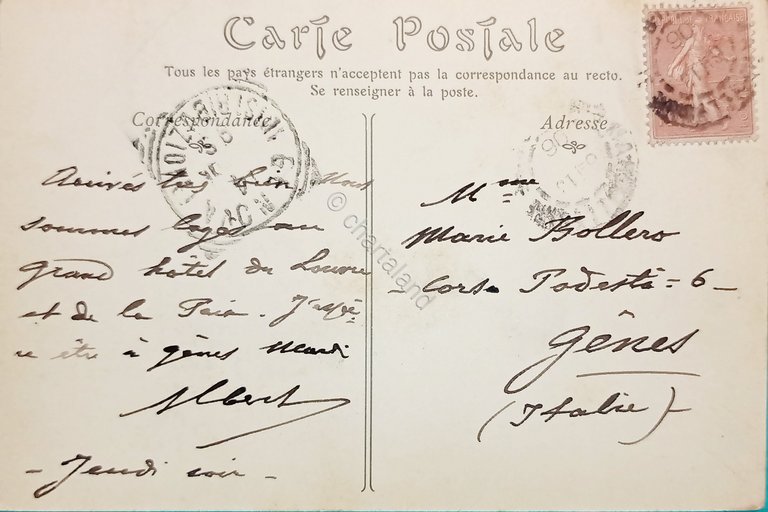 Carte Postale
Tous les pays étrangers n'acceptent pas la correspondance au recto.
Se renseigner à la poste.
Correspondance
Arrivés très bien. Nous
sommes logés au
grand hôtel du Louvre
et de la Paix. J'espè-
re être à gênes Mardi
Albert
- Jeudi soir -
Adresse
Mme
Marie Bollero
- Corso Podestà = 6 -
Gênes
(Italie)
© chartaland